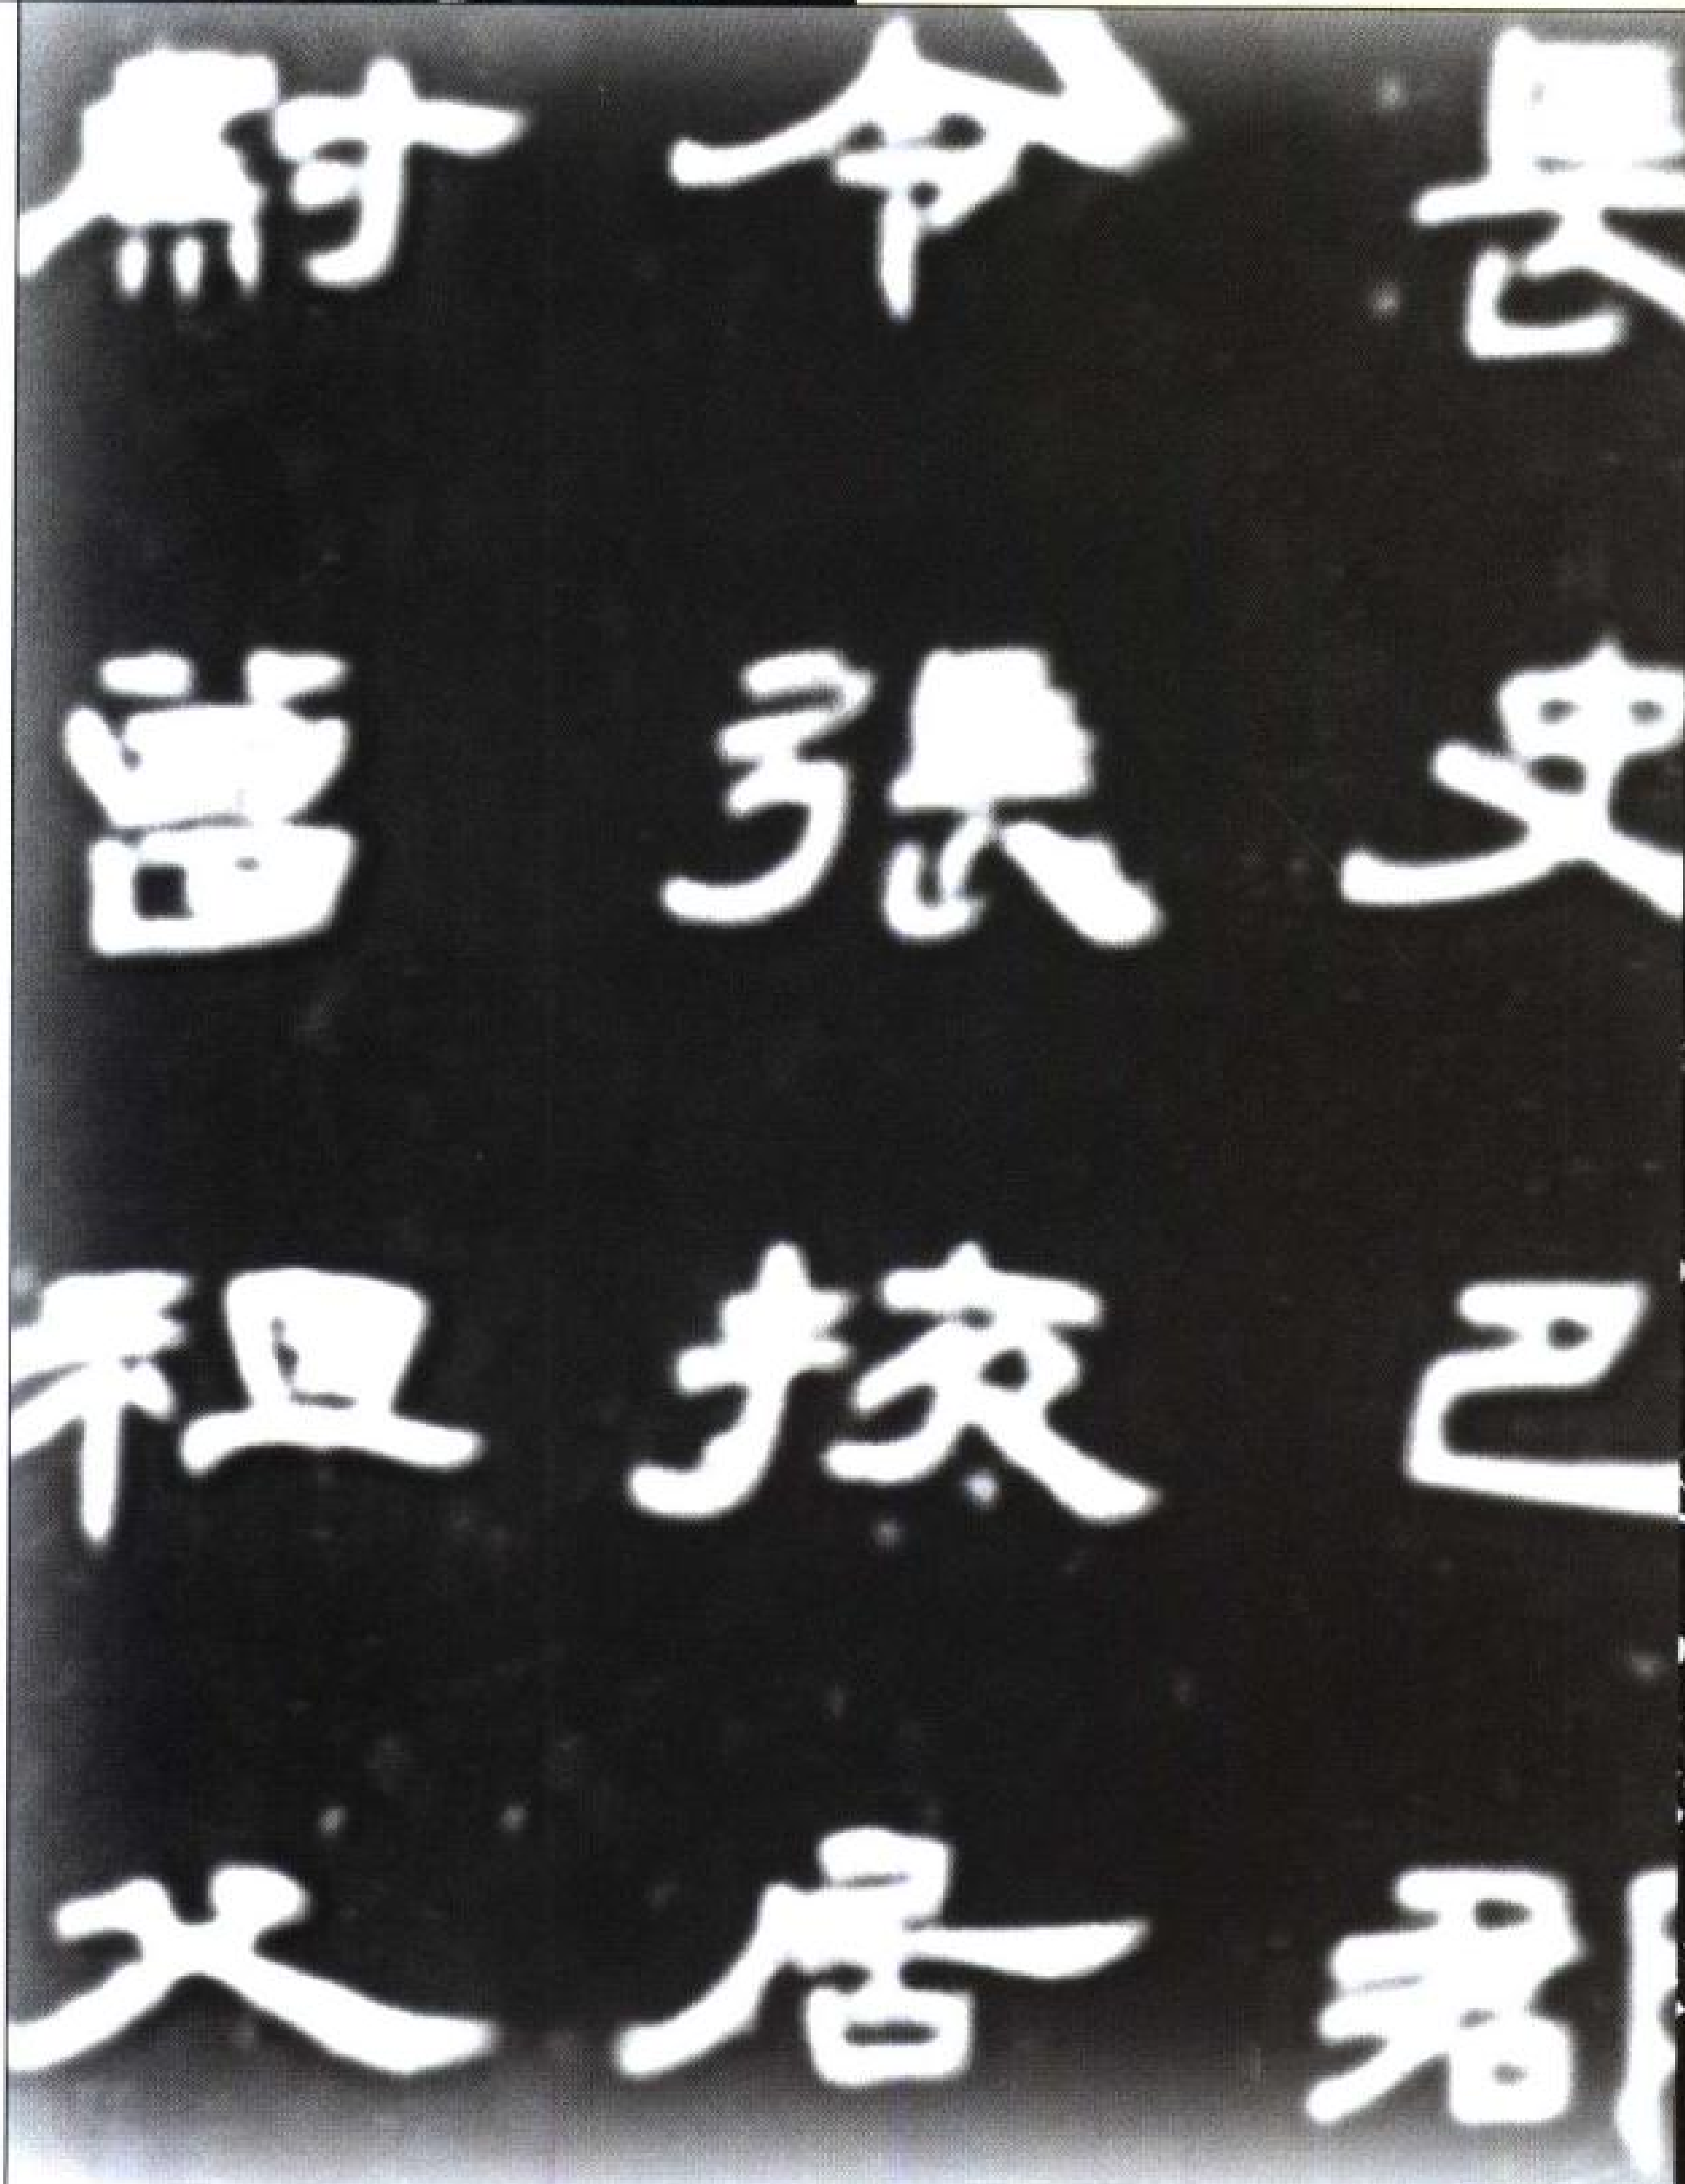 長史巴郡
令張掖居
尉曾祖父